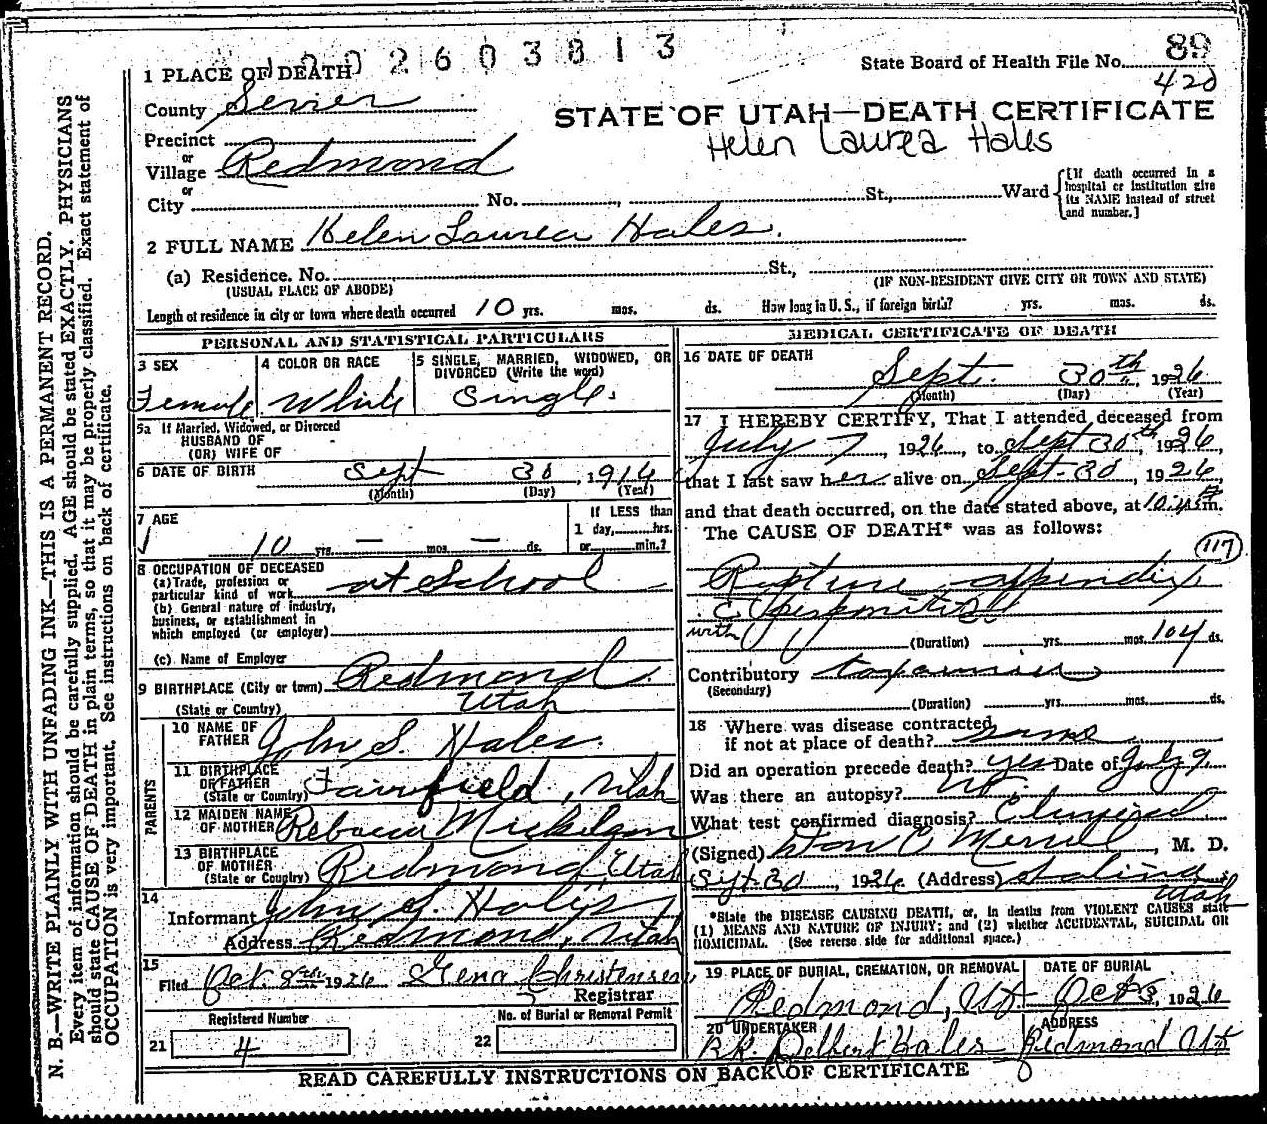 2603813
State Board of Health File No. 89
420
1 PLACE OF DEATH
County Sevier
STATE OF UTAH—DEATH CERTIFICATE
Helen Laurea Hales
Precinct
or
Village Redmond
or
City No. , St., Ward
[If death occurred in a hospital or institution give its NAME instead of street and number.]
2 FULL NAME Helen Laurea Hales.
(a) Residence. No. St.,
(USUAL PLACE OF ABODE) (IF NON-RESIDENT GIVE CITY OR TOWN AND STATE)
Length of residence in city or town where death occurred 10 yrs. mos. ds. How long in U. S., if foreign birth? yrs. mos. ds.
PERSONAL AND STATISTICAL PARTICULARS
3 SEX
Female
4 COLOR OR RACE
White
5 SINGLE, MARRIED, WIDOWED, OR DIVORCED (Write the word)
Single.
5a If Married, Widowed, or Divorced
HUSBAND OF
(OR) WIFE OF
6 DATE OF BIRTH Sept 30, 1916
(Month) (Day) (Year)
7 AGE
10 yrs. — mos. — ds.
If LESS than
1 day, hrs.
or min.?
8 OCCUPATION OF DECEASED
(a) Trade, profession or
particular kind of work at School
(b) General nature of industry,
business, or establishment in
which employed (or employer)
(c) Name of Employer
9 BIRTHPLACE (City or town) Redmond
(State or Country) Utah
PARENTS
10 NAME OF
FATHER John S. Hales.
11 BIRTHPLACE
OF FATHER
(State or Country) Fairfield, Utah
12 MAIDEN NAME
OF MOTHER Rebecca Mickelson
13 BIRTHPLACE
OF MOTHER
(State or Country) Redmond, Utah
14
Informant John S. Hales
Address Redmond, Utah
15
Filed Oct. 8th 1926 Gena Christensen
Registrar
Registered Number
21 4
No. of Burial or Removal Permit
22
MEDICAL CERTIFICATE OF DEATH
16 DATE OF DEATH
Sept. 30th, 1926
(Month) (Day) (Year)
17 I HEREBY CERTIFY, That I attended deceased from
July 7, 1926, to Sept 30th, 1926,
that I last saw her alive on Sept 30, 1926,
and that death occurred, on the date stated above, at m.
The CAUSE OF DEATH* was as follows:
117
Rupture appendix
c̄
with
(Duration) yrs. mos. 104 ds.
Contributory
(Secondary)
(Duration) yrs. mos. ds.
18 Where was disease contracted
if not at place of death? same
Did an operation precede death? yes Date of July 9
Was there an autopsy? No
What test confirmed diagnosis? Clinical
(Signed) Don C Merrill, M. D.
Sept. 30, 1926 (Address) Salina
Utah
*State the DISEASE CAUSING DEATH, or, in deaths from VIOLENT CAUSES state
(1) MEANS AND NATURE OF INJURY; and (2) whether ACCIDENTAL, SUICIDAL OR
HOMICIDAL. (See reverse side for additional space.)
19 PLACE OF BURIAL, CREMATION, OR REMOVAL
Redmond, Ut.
DATE OF BURIAL
Oct 3, 1926
20 UNDERTAKER
Delbert Hales
ADDRESS
Redmond Ut
READ CAREFULLY INSTRUCTIONS ON BACK OF CERTIFICATE
N. B.—WRITE PLAINLY WITH UNFADING INK—THIS IS A PERMANENT RECORD.
Every item of information should be carefully supplied. AGE should be stated EXACTLY. PHYSICIANS
should state CAUSE OF DEATH in plain terms, so that it may be properly classified. Exact statement of
OCCUPATION is very important. See instructions on back of certificate.